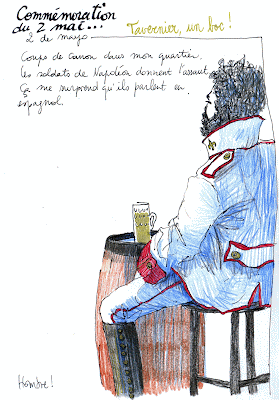 Commémoration
du 2 mai...
Tavernier, un boc !
2 de mayo
Coups de canon dans mon quartier,
les soldats de Napoléon donnent l'assaut.
Ça me surprend qu'ils parlent en
espagnol.
Hombre !